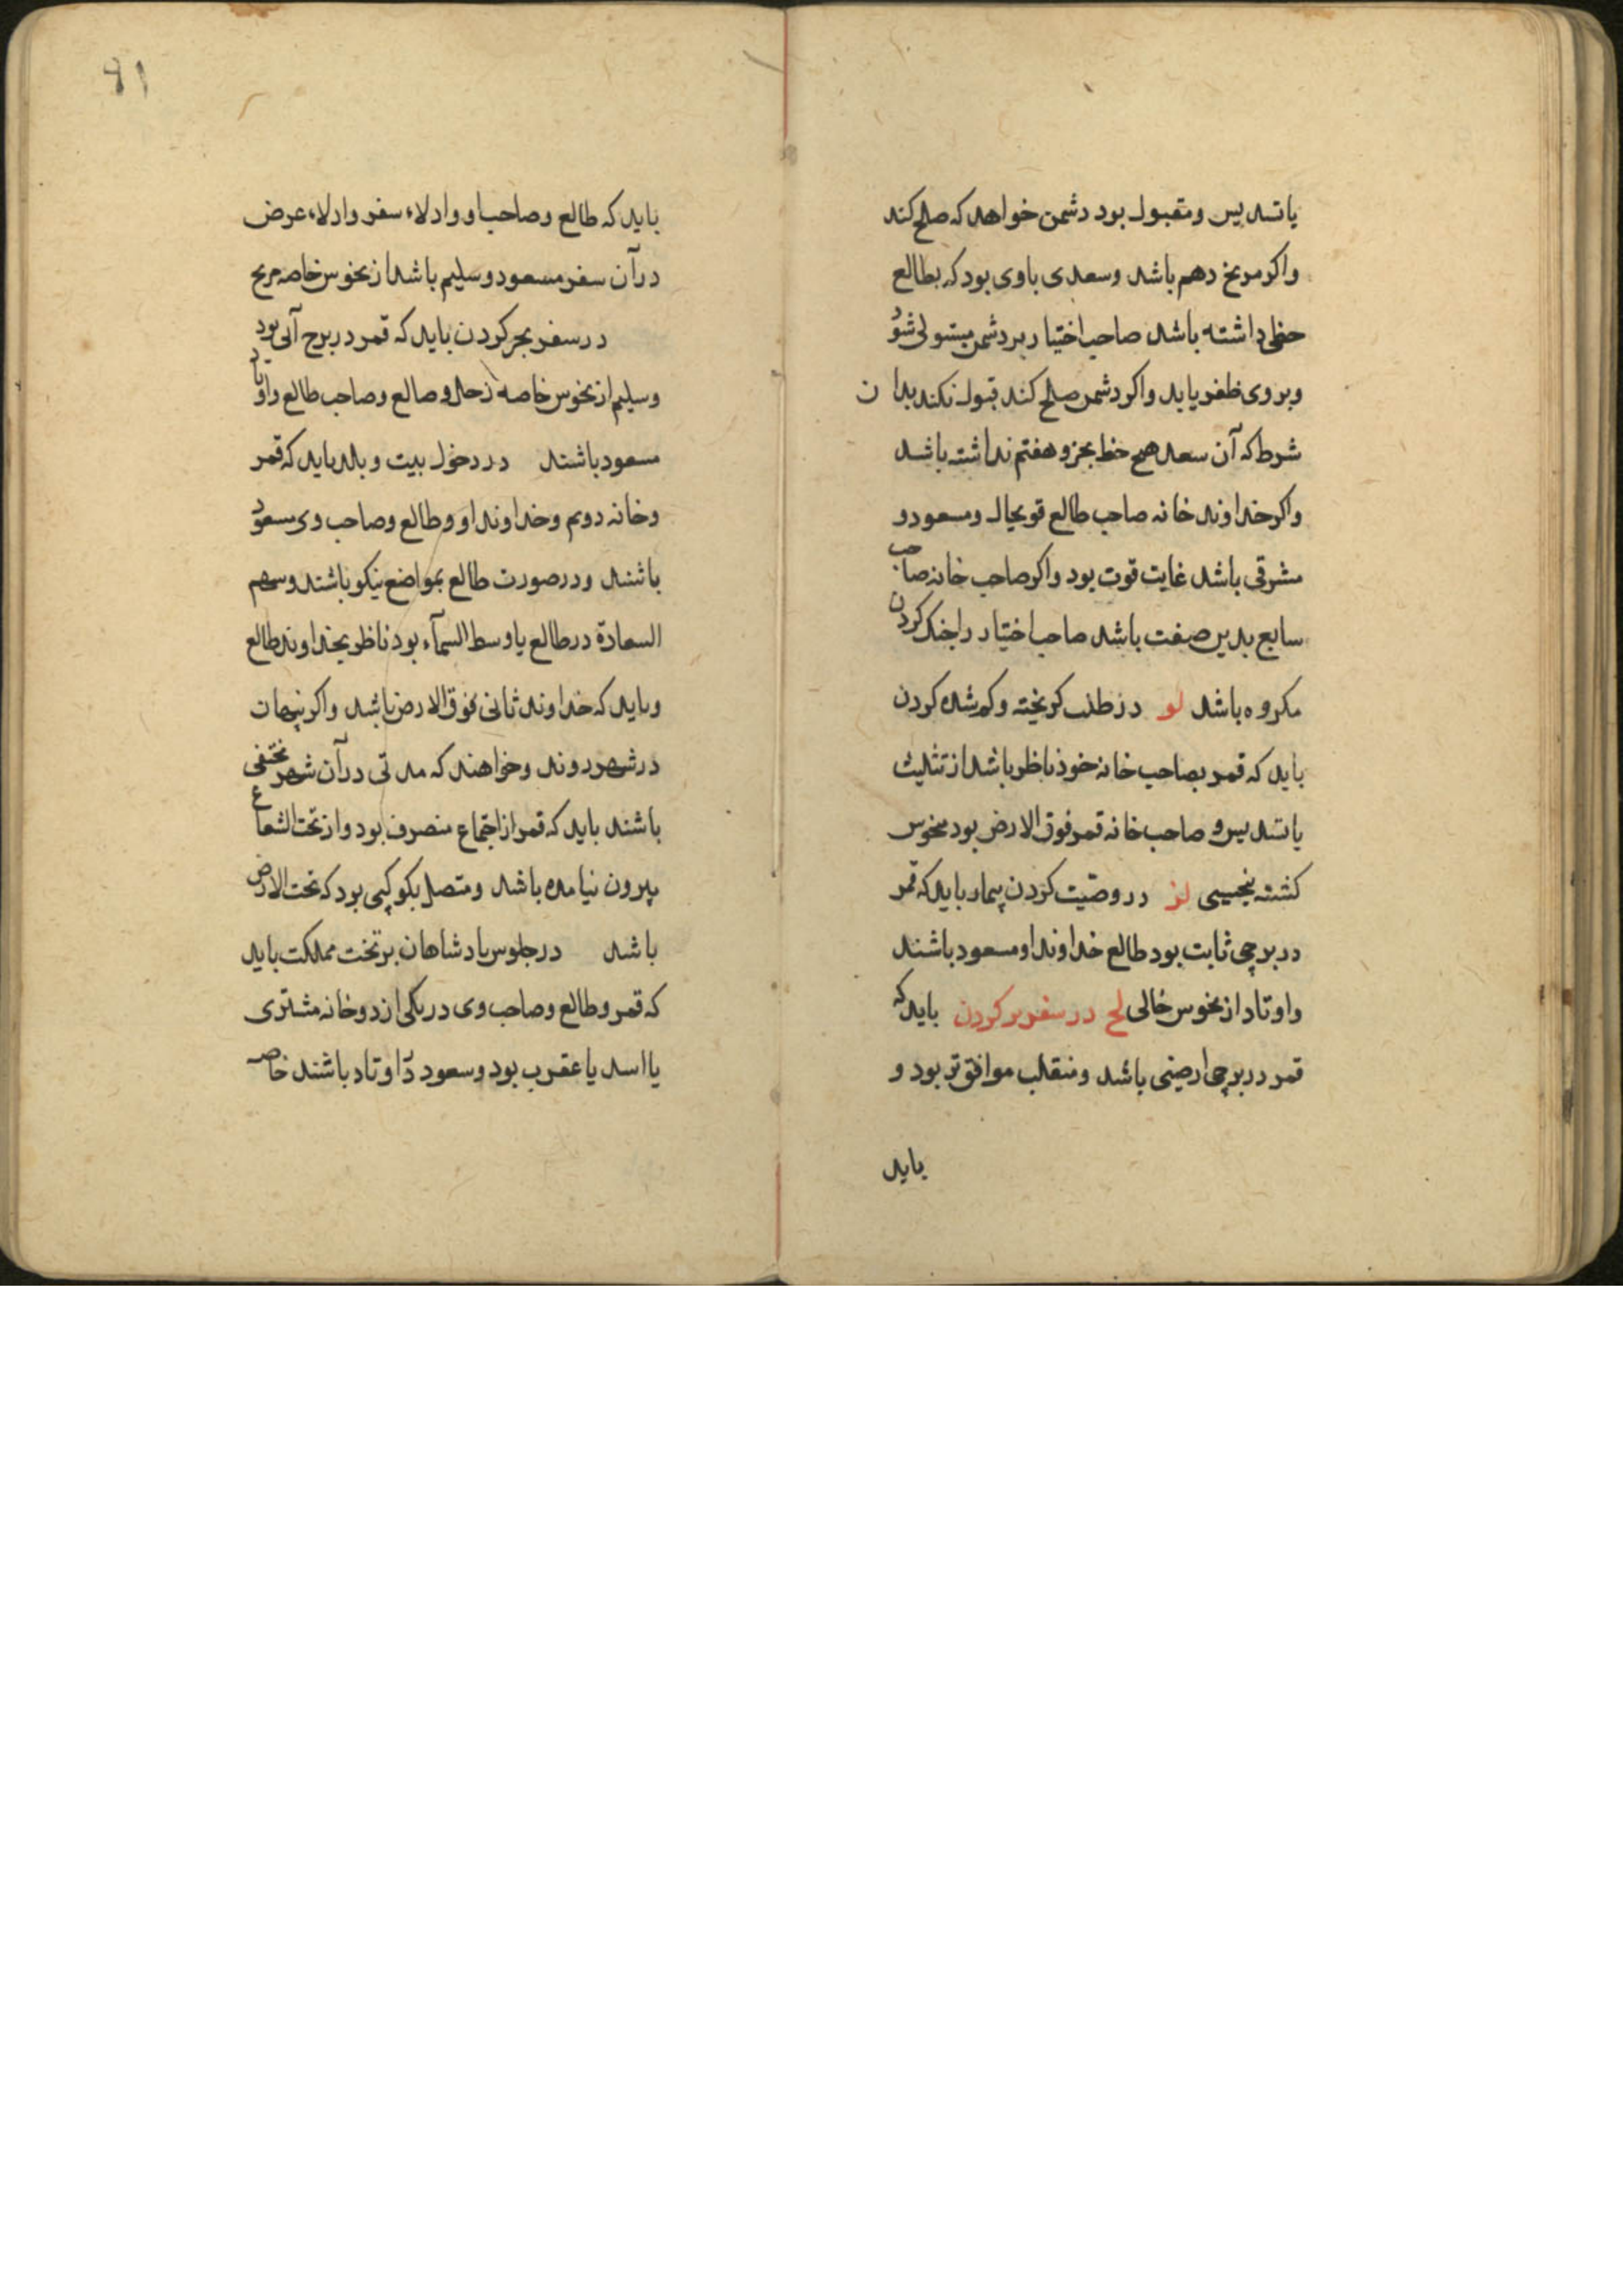 یا تسدیس و مقبول بود دشمن خواهد که صلح کند
واکر مریخ دهم باشد وسعدی باوی بود که بطالع
حظی داشته باشد صاحب اختیار بردشمن مستولی شود
وبروی ظفر یابد واکر دشمن صلح کند قبول نکند بدان
شرط که آن سعد هیچ حظ بجزو هفتم نداشته باشد
واکر خداوند خانه صاحب طالع قویحال ومسعود و
مشرقی باشد غایت قوت بود واکر صاحب خانه صاحب
سابع بدین صفت باشد صاحب اختیار را جنک کردن
مکروه باشد لو در طلب کریخته وکم شده کردن
باید که قمر بصاحب خانه خود ناظر باشد از تثلیث
یا تسدیس و صاحب خانه قمر فوق الارض بود منحوس
کشته بنحسی لز در وصیّت کردن بیمار باید که قمر
در برجی ثابت بود طالع خداوند او مسعود باشند
واوتاد از نحوس خالی لح در سفر بر کردن باید که
قمر در برجی ارضی باشد ومنقلب موافق تر بود و
باید
۹۱
باید که طالع وصاحب او وادلاء سفر وادلاء عرض
در آن سفر مسعود وسلیم باشد از نحوس خاصه مریخ
در سفر بحر کردن باید که قمر در برج آبی بود
وسلیم از نحوس خاصه زحل و صالع وصاحب طالع واوتاد
مسعود باشند در دخول بیت و بلد باید که قمر
وخانه دوم وخداوند او وطالع وصاحب وی مسعود
باشند ودر صورت طالع بمواضع نیکو باشند وسهم
السعادة در طالع یا وسط السمآء بود ناظر بخداوند طالع
وباید که خداوند ثانی فوق الارض باشد واکر پنهان
در شهر روند وخواهند که مدتی در آن شهر مختفی
باشند باید که قمر از اجتماع منصرف بود واز تحت الشعاع
بیرون نیامده باشد ومتصل بکوکبی بود که تحت الارض
باشد در جلوس پادشاهان بر تخت مملکت باید
که قمر وطالع وصاحب وی در یکی از دوخانه مشتری
یا اسد یا عقرب بود وسعود در اوتاد باشند خاصه